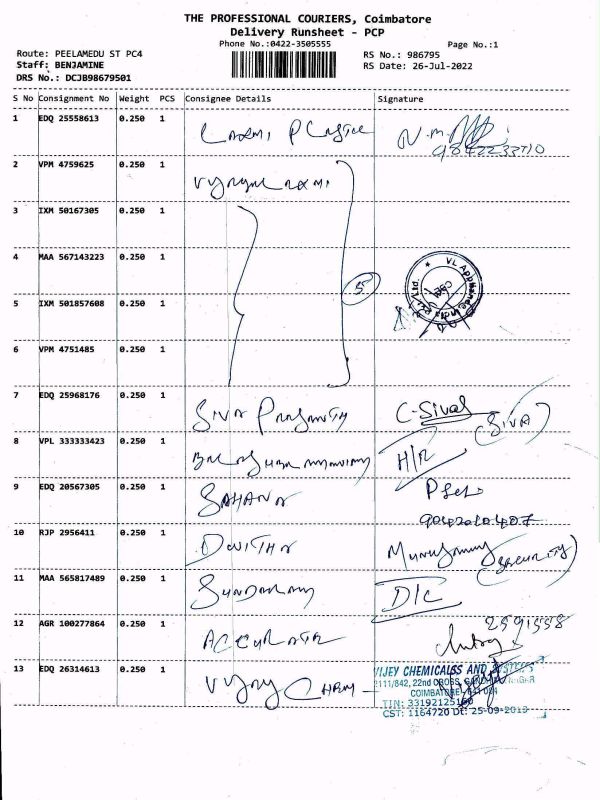 THE PROFESSIONAL COURIERS, Coimbatore
Delivery Runsheet - PCP
Phone No.:0422-3505555
Page No.:1
Route: PEELAMEDU ST PC4
RS No.: 986795
Staff: BENJAMINE
RS Date: 26-Jul-2022
DRS No.: DCJB98679501
S No Consignment No Weight PCS Consignee Details Signature
1 EDQ 25558613 0.250 1 Laxmi
2 VPM 4759625 0.250 1
3 IXM 50167305 0.250 1
4 MAA 567143223 0.250 1
VL Appliances India Pvt.Ltd.
5 IXM 501857608 0.250 1
5
6 VPM 4751485 0.250 1
7 EDQ 25968176 0.250 1 SIVA PRASANTH C-Sivas
(SIVA)
8 VPL 333333423 0.250 1 H/R
9 EDQ 20567305 0.250 1 SAHANA
9042010407
10 RJP 2956411 0.250 1 (SECURITY)
11 MAA 565817489 0.250 1 D/C
12 AGR 100277864 0.250 1 ACCURATE 2591558
13 EDQ 26314613 0.250 1
VIJEY CHEMICALSS AND SYSTEMS
2111/842, 22nd CROSS,
COIMBATORE
TIN: 33192125
CST: 1164720 Dt: 25-09-2019